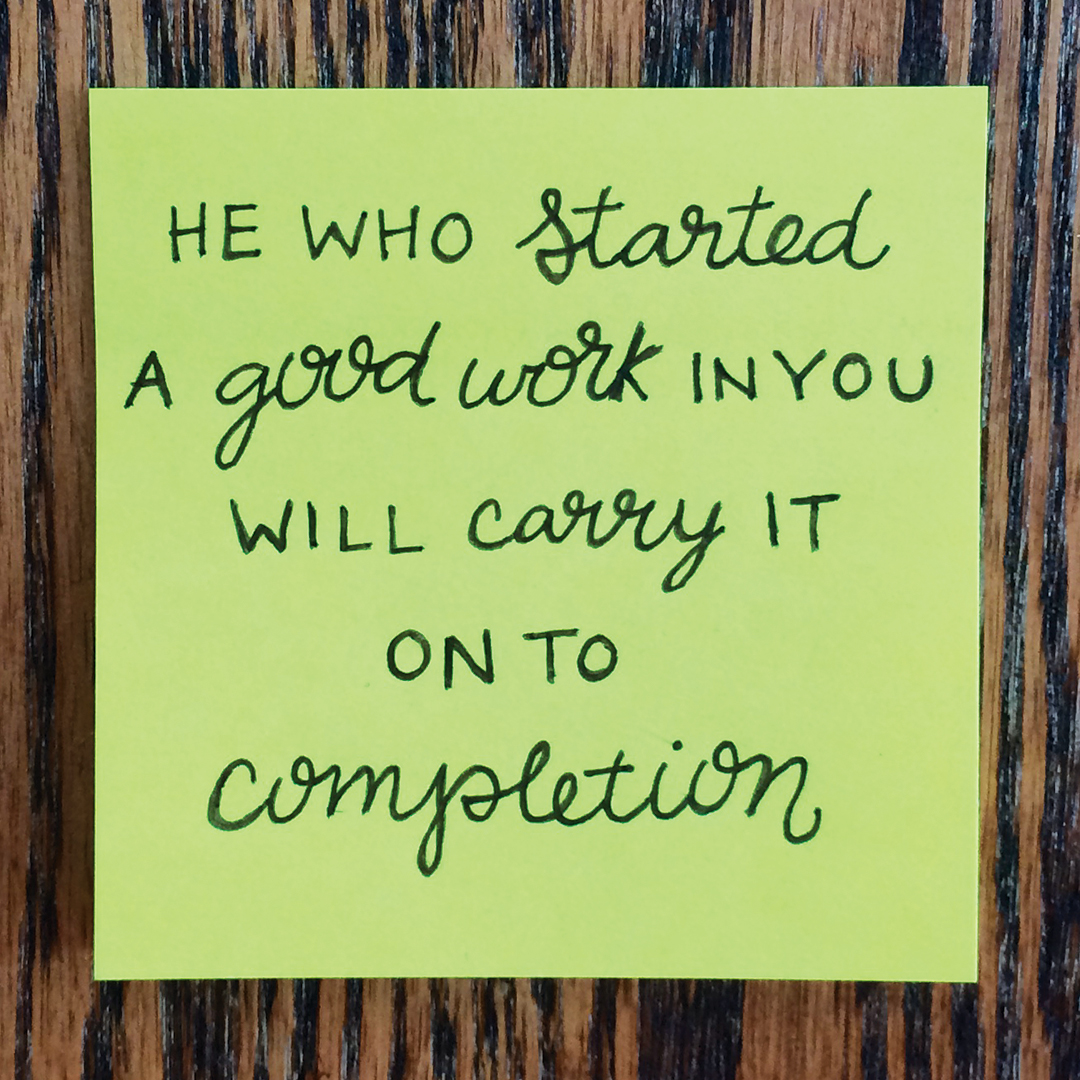 HE WHO started
A good work IN YOU
WILL carry IT
ON TO
completion